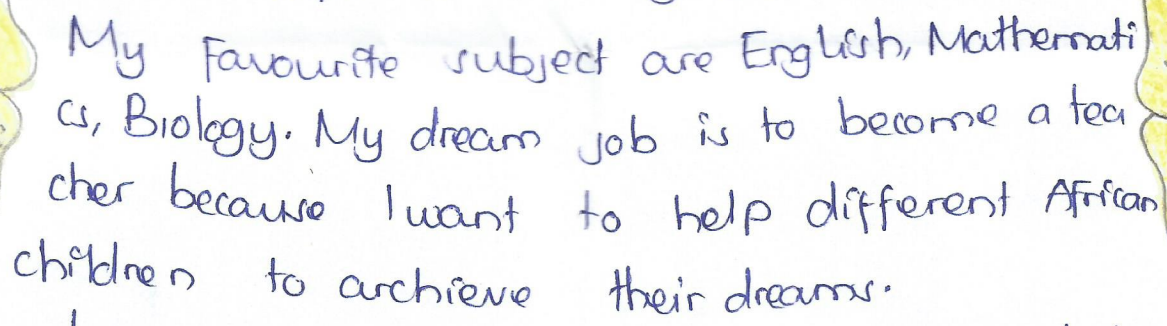 My Favourite subject are English, Mathemati
cs, Biology. My dream job is to become a tea
cher because I want to help different African
children to archieve their dreams.